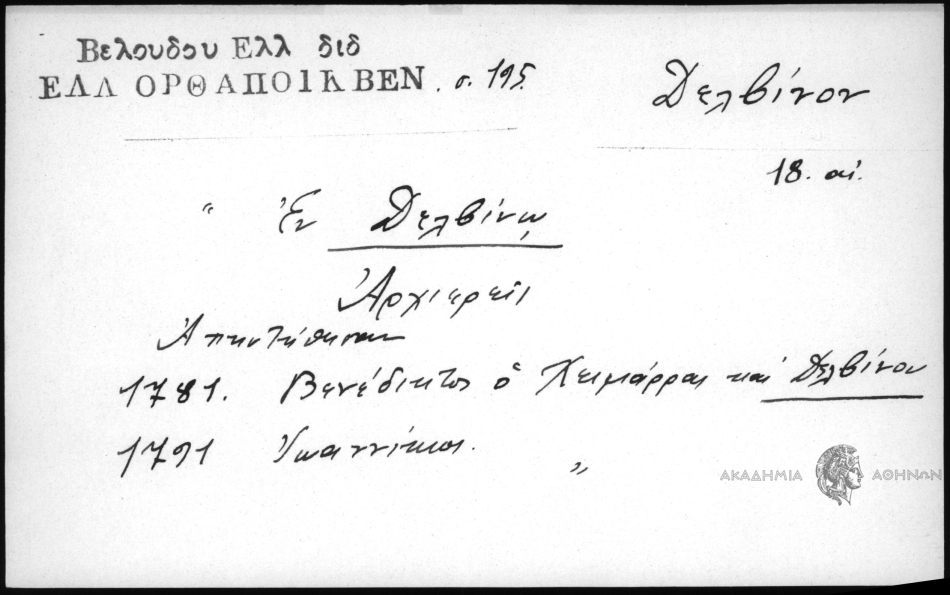 Βελουδου Ελλ διδ
ΕΛΛ ΟΡΘΑΠΟΙΚ ΒΕΝ . σ. 195.
Δελβίνον
18. αἰ.
" Ἐν Δελβίνῳ
Ἀρχιερεῖς
Ἀπηντήθησαν
1781. Βενέδικτος ὁ Χειμάρρας καὶ Δελβίνου
1791 Ἰωαννίκιος. "
ΑΚΑΔΗΜΙΑ ΑΘΗΝΩΝ